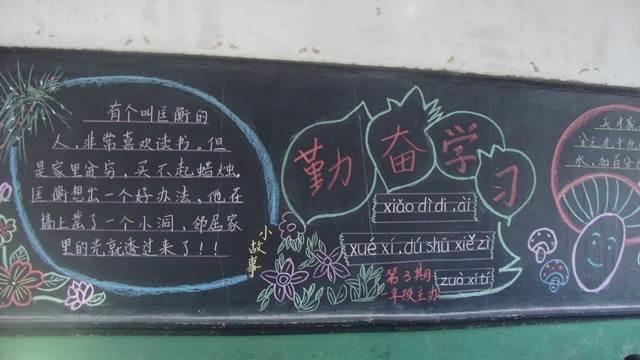 有个叫匡衡的
人，非常喜欢读书。但
是家里穷穷，买不起蜡烛。
匡衡想出一个好办法，他在
墙上凿了一个小洞，邻居家
里的光就透过来了！！
小故事
勤奋学习
xiǎo dì di . ài
xué xí . dú shū xiě zì
zuò xí tí
第3期
一年级主办
天才是
分之九十九
水，加百分